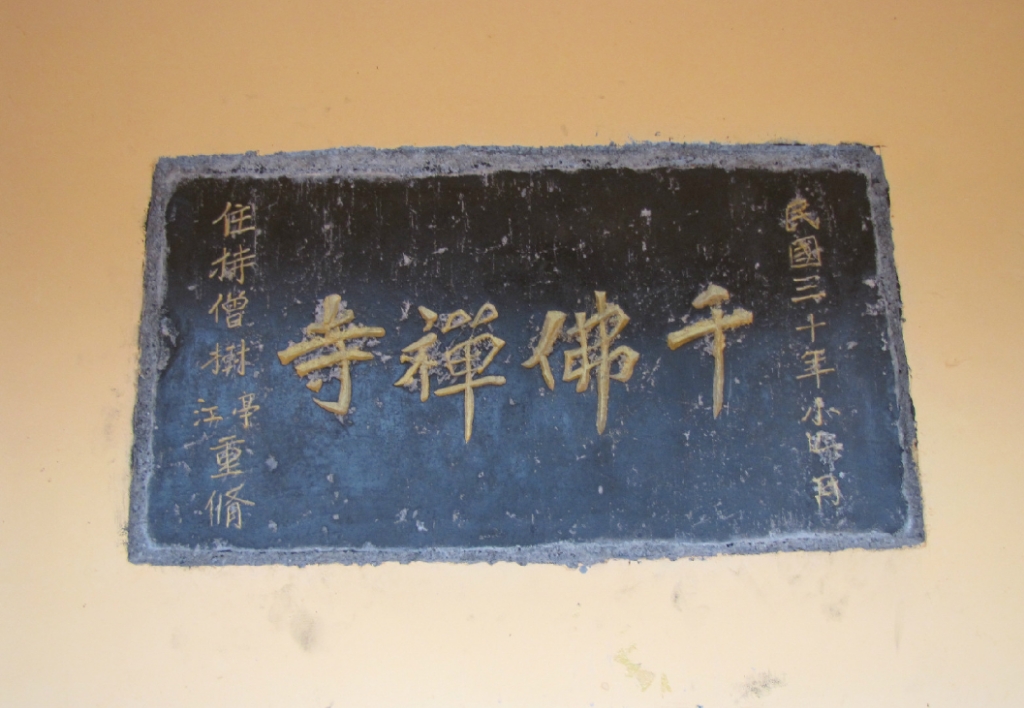 民國三十年小陽月
千佛禪寺
住持僧樹
重脩